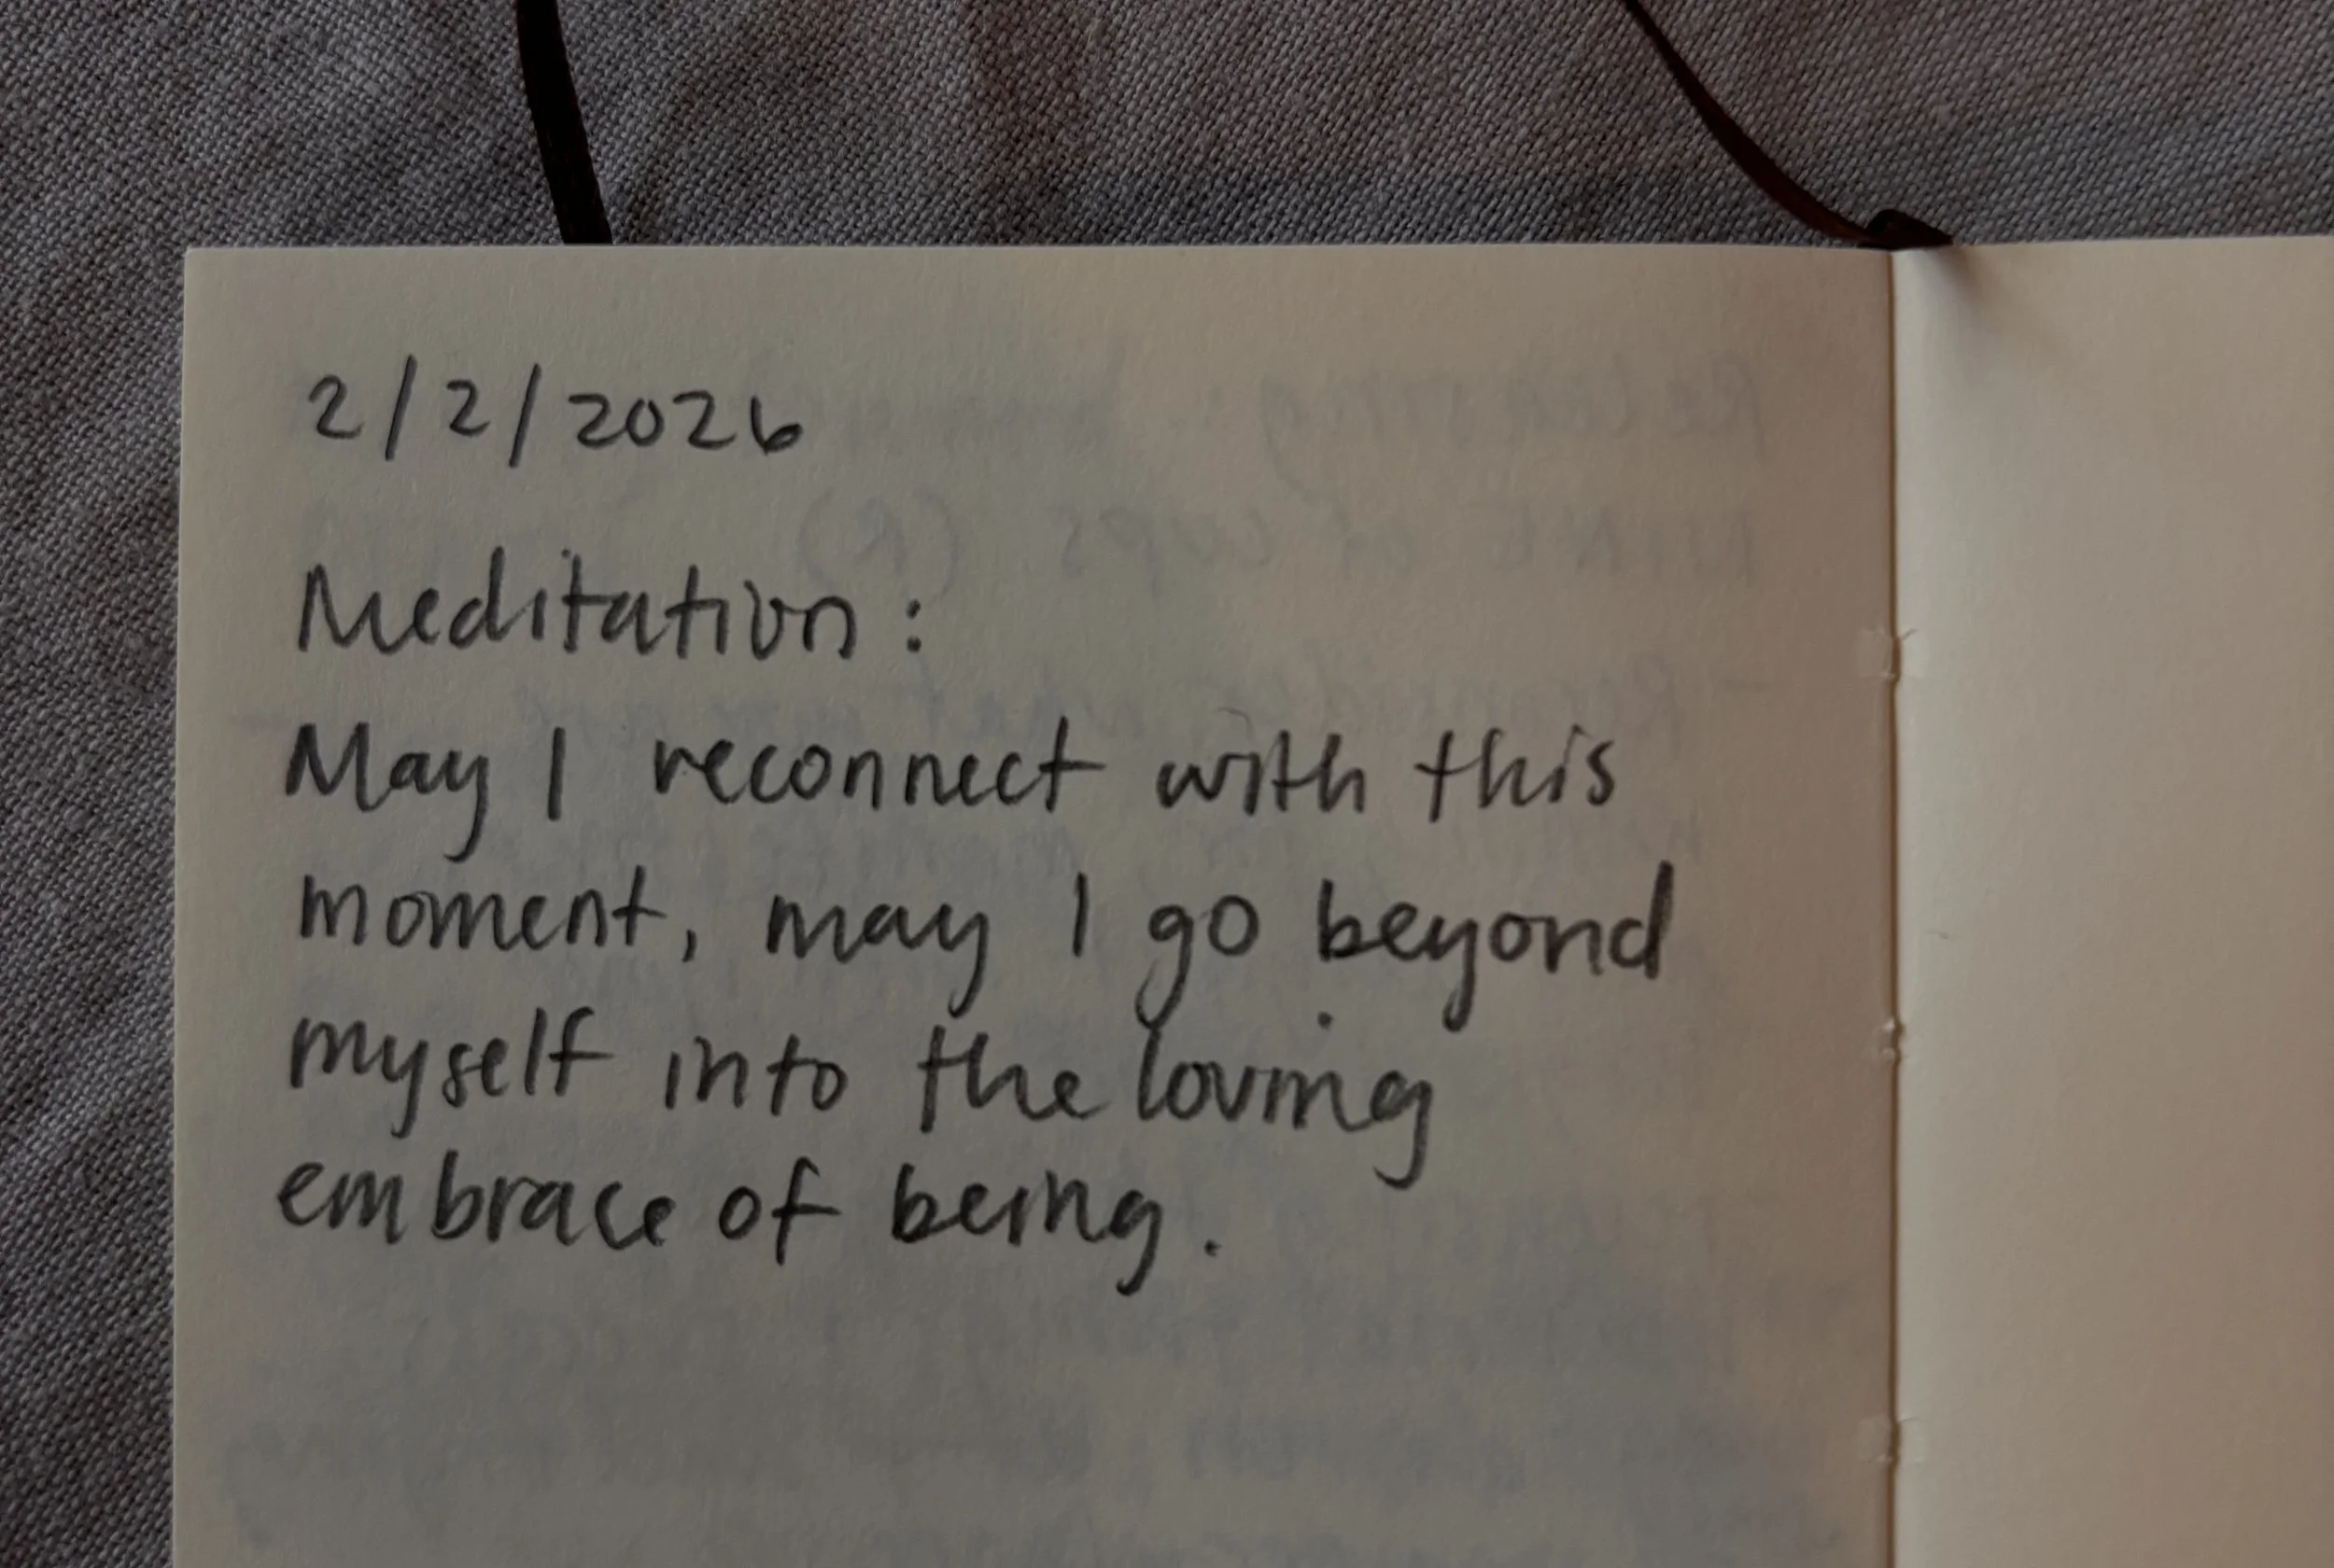 2/2/2026
Meditation:
May I reconnect with this
moment, may I go beyond
myself into the loving
embrace of being.